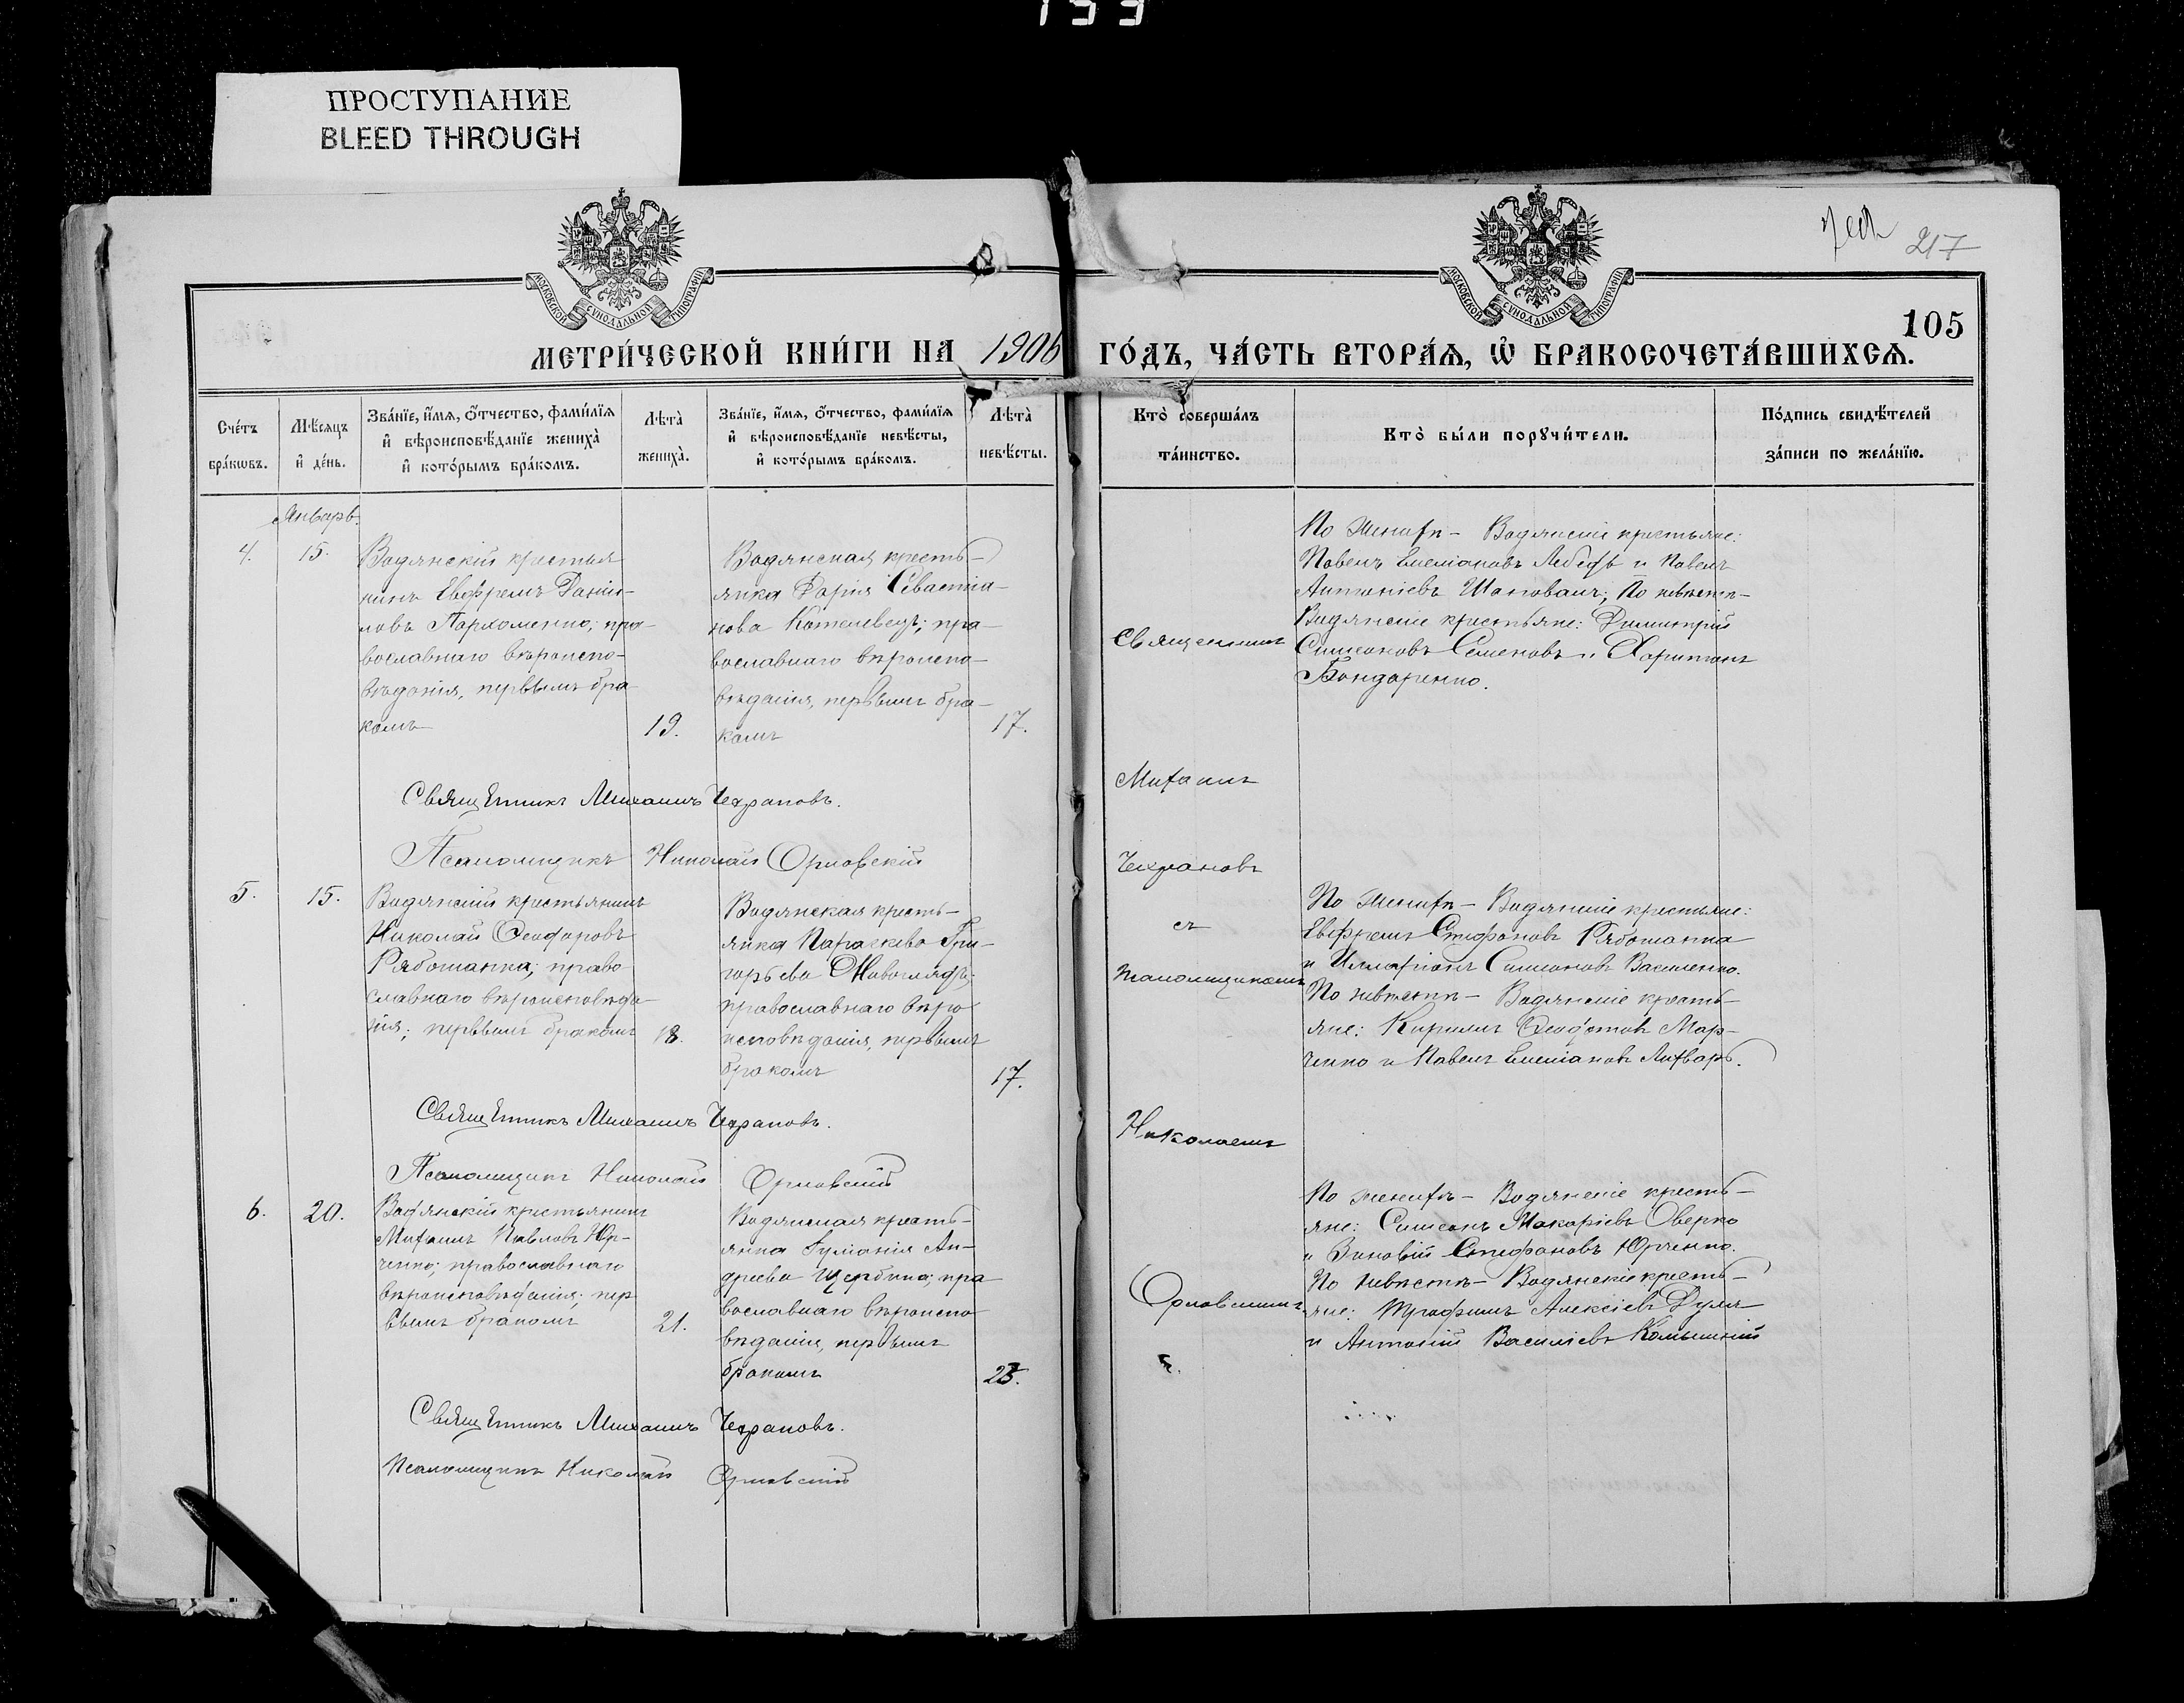 ПРОСТУПАНИЕ
BLEED THROUGH
217
105
МЕТРИ́ЧЕСКОЙ КНИ́ГИ НА 1906 ГО́ДЪ, ЧА́СТЬ ВТОРА́Ѧ, Ѽ БРАКОСОЧЕТА́ВШИХСѦ.
Сче́тъ бра́кѡвъ.
Мѣ́сяцъ и҆ де́нь.
Зва́нїе, и҆́мя, ѻ҆́тчество, фами́лїя
и҆ вѣроисповѣ́данїе жениха̀
и҆ кото́рымъ бра́комъ.
Лѣта̀
жениха̀.
Зва́нїе, и҆́мя, ѻ҆́тчество, фами́лїя
и҆ вѣроисповѣ́данїе невѣ́сты,
и҆ кото́рымъ бра́комъ.
Лѣта̀
невѣ́сты.
Кто̀ соверша́лъ
та́инство.
Кто̀ бы́ли порꙋчи́тели.
По́дпись свидѣ́телей
за́писи по жела́нїю.
Январь
4.
15.
Водянскій крестья
нинъ Евфремъ Данiи-
ловъ Пархоменко; пра-
вославнаго вѣроиспо-
вѣданія, первымъ бра
комъ
19.
Водянская кресть-
янка Дарія Севастіа-
нова Котелевецъ; пра-
вославнаго вѣроиспо-
вѣданія, первымъ бра-
комъ
17.
Священникъ Михаилъ Чехрановъ.
Псаломщикъ Николай Орловскій
5.
15.
Водянскій крестьянинъ
Николай Ѳеодоровъ
Рябошапка; право
славнаго вѣроисповѣда
нія; первымъ бракомъ
18.
Водянская кресть-
янка Параскева Гри-
горьева
православнаго вѣро
исповѣданія, первымъ
бракомъ
17.
Священникъ Михаилъ Чехрановъ.
Псаломщикъ Николай Орловскій
6.
20.
Водянскій крестьянинъ
Михаилъ Павловъ Юр-
ченко; православнаго
вѣроисповѣданія; пер
вымъ бракомъ
21.
Водянская кресть-
янка Іуліанія Ан-
дреева Щербина; пра
вославнаго вѣроиспо
вѣданія, первымъ
бракомъ
23.
Священникъ Михаилъ Чехрановъ.
Псаломщикъ Николай Орловскій
Священникъ
Михаилъ
Чехрановъ
съ
псаломщикомъ
Николаемъ
Орловскимъ.
По женихѣ - Водянскіе крестьяне:
Павелъ Емеліановъ Лебедь и Павелъ
Антоніевъ Шаповалъ; По невѣстѣ -
Водянскіе крестьяне: Димитрій
Симеоновъ Семеновъ и Харитонъ
Бондаренко.
По женихѣ - Водянскіе крестьяне:
Евфремъ Стефановъ Рябошапка
и Илларіонъ Симеоновъ Василенко.
По невѣстѣ - Водянскіе кресть-
яне: Кириллъ Ѳеодотовъ Мар-
ченко и Павелъ Емеліановъ Лихваръ.
По женихѣ - Водянскіе кресть-
яне: Симеонъ Макаріевъ Оверко
и Зиновій Стефановъ Юрченко.
По невѣстѣ - Водянскіе кресть-
яне: Трофимъ Алексіевъ Дуля
и Антоній Василіевъ